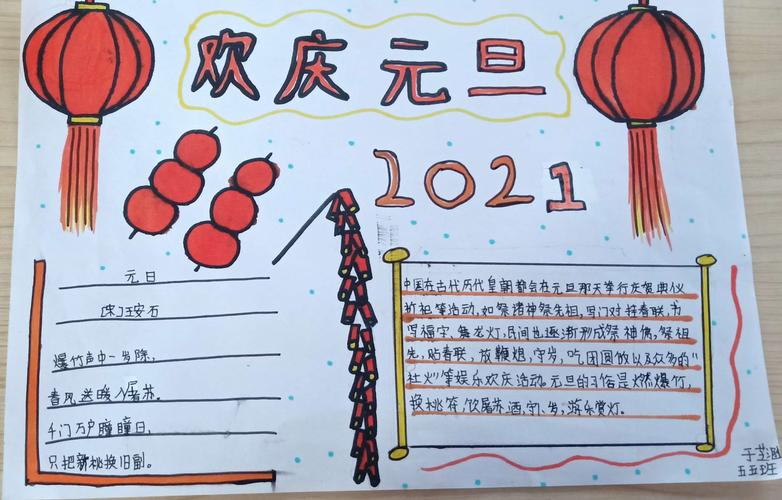 欢庆元旦
2021
元日
[宋]王安石
爆竹声中一岁除,
春风送暖入屠苏。
千门万户瞳瞳日,
只把新桃换旧副。
中国在古代历代皇朝都会在元旦那天举行庆贺典仪
祈祖等活动,如祭诸神祭先祖,写门对挂春联,书
写福字、舞龙灯,民间也逐渐形成祭神佛,祭祖
先,贴春联,放鞭炮,守岁,吃团圆饭以及众多的"
社火"等娱乐欢庆活动。元旦的习俗是燃爆竹,
换桃符,饮屠苏酒,守岁,游乐赏灯。
于
五五班